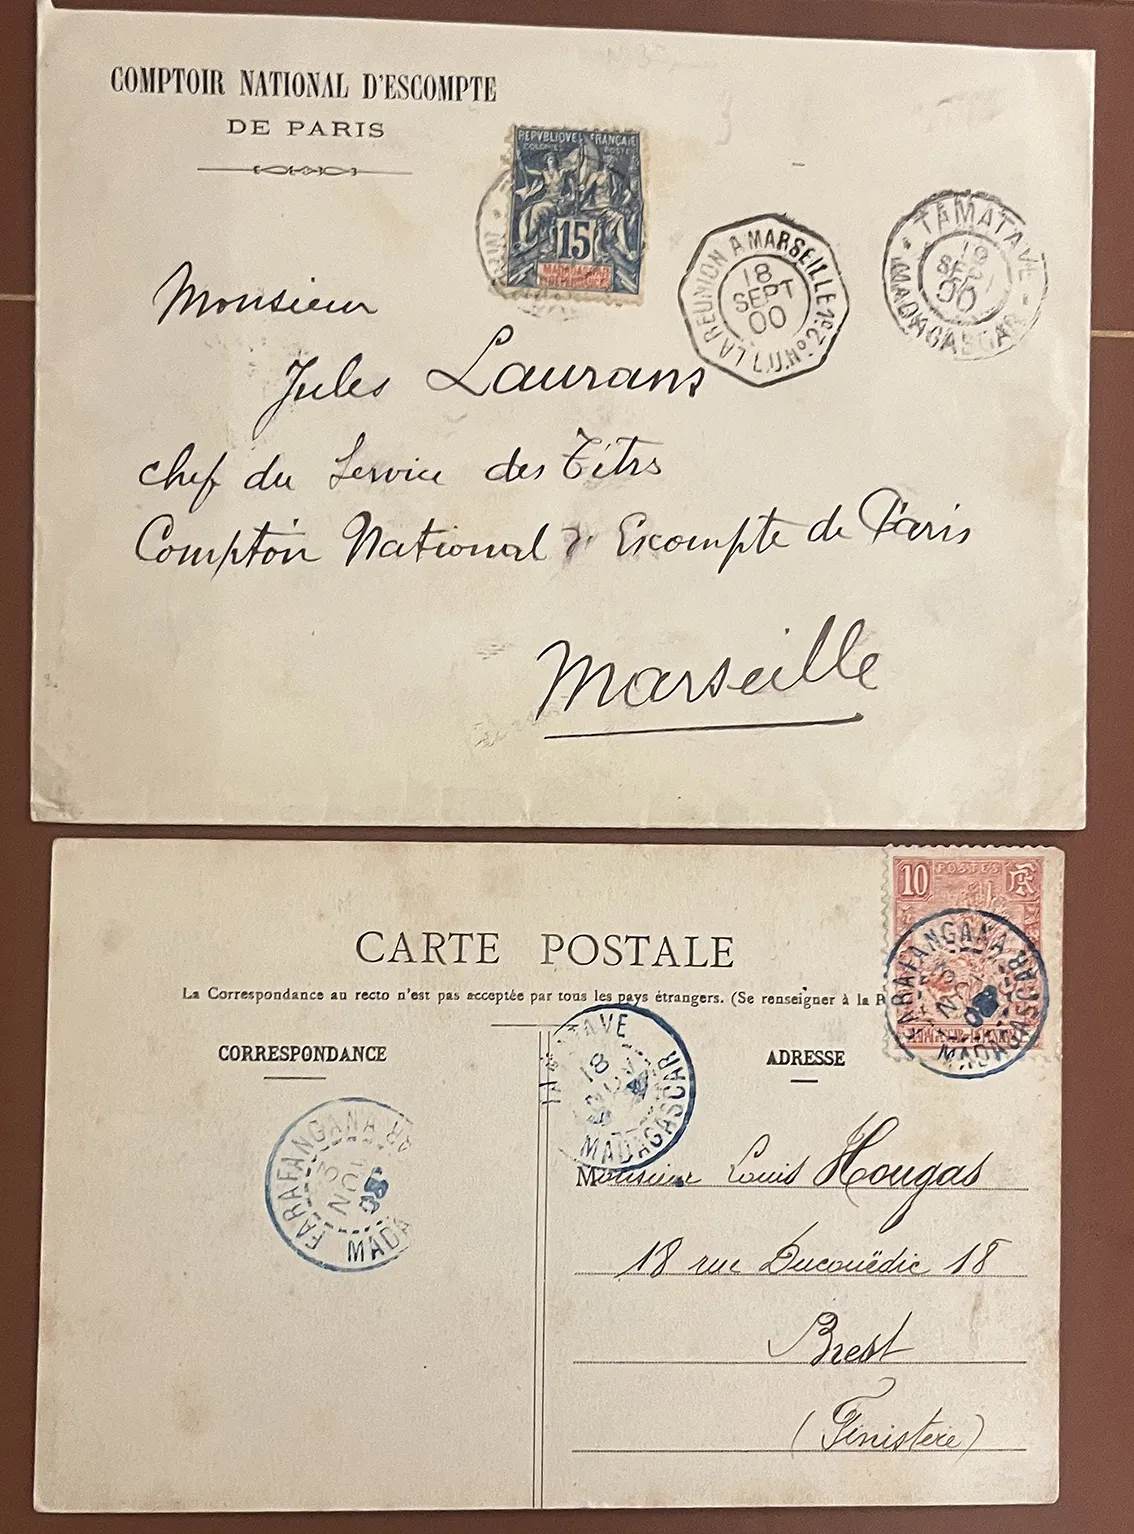 COMPTOIR NATIONAL D'ESCOMPTE
DE PARIS
REPVBLIQVE FRANÇAISE
COLONIES POSTES
15
MADAGASCAR
DÉPENDANCES
LA REUNION A MARSEILLE
L.U. No
18 SEPT
00
TAMATAVE
MADAGASCAR
SEPT
00
Monsieur
Jules Laurans
chef du Service des Titres
Comptoir National d'Escompte de Paris
Marseille
10 POSTES RF
FARAFANGANA
MADAGASCAR
CARTE POSTALE
La Correspondance au recto n'est pas acceptée par tous les pays étrangers. (Se renseigner à la
CORRESPONDANCE
ADRESSE
TAVE
18
MADAGASCAR
FARAFANGANA
JUN
MADA
Monsieur Louis Hougas
18 rue Ducouëdic 18
Brest
(Finistère)